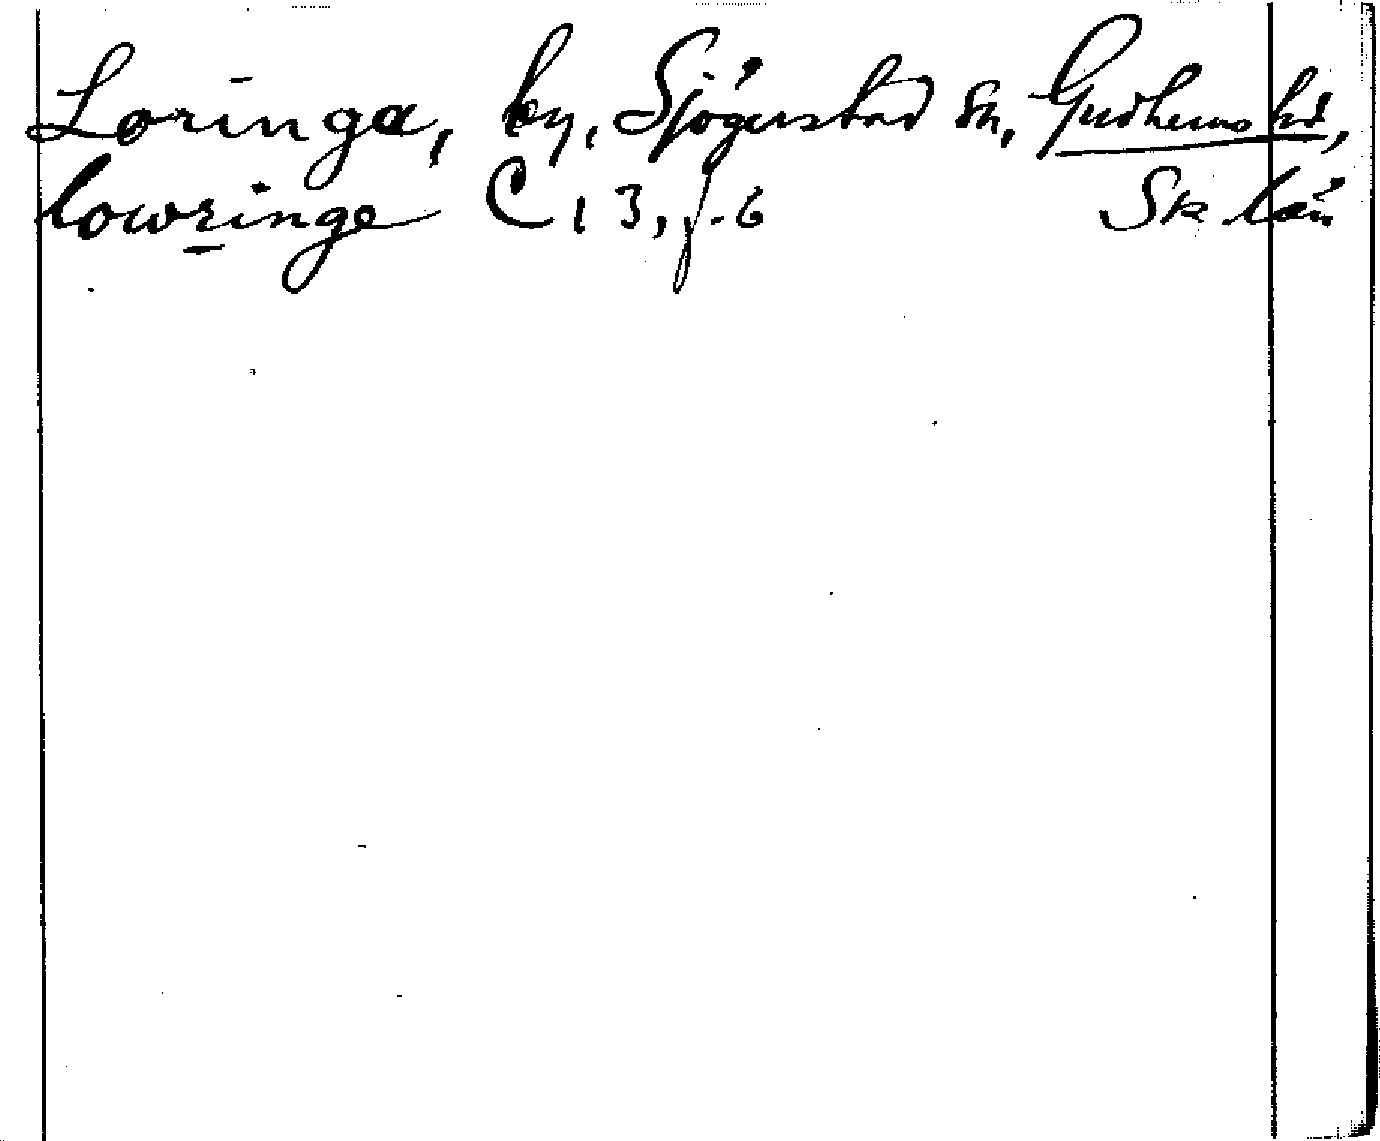 Loringa, by, Sjögerstad sn, Gudhems hd,
lowringe C 13, f. 6 Sk län